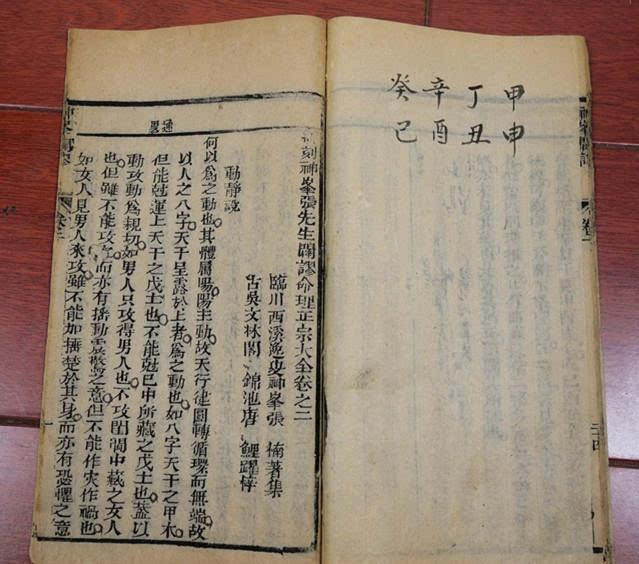 甲申
丁丑
辛酉
癸巳
刻神峯張先生闢謬命理正宗大全卷之二
臨川西溪逸叟神峯張 楠著集
古吳文林閣 錦池唐 鯉躍梓
動靜說
何以為之動也其體屬陽陽主動故天行健圓轉循環而無端故
以人之八字天干呈露於上者為之動也如八字天干之甲木
但能尅運上天干之戊土也不能尅巳中所藏之戊土也蓋以
動攻動為親切如男人只攻得男人也不攻閨閫中藏之女人
也但雖不能攻之而亦有搖動震驚之意但不能作灾作禍也
如女人見男人來攻雖不能加捶楚於其身而亦有恐懼之意